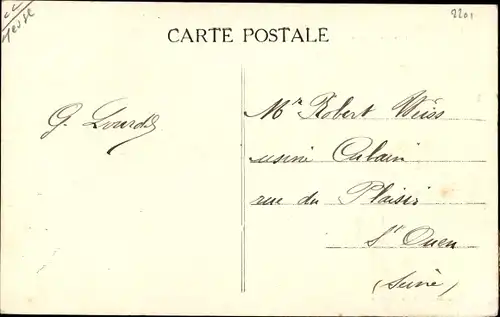 Meuse
2201
CARTE POSTALE
G. Lourds
Mr. Robert Weiss
usine
rue du Plaisir
St Ouen
(Seine)